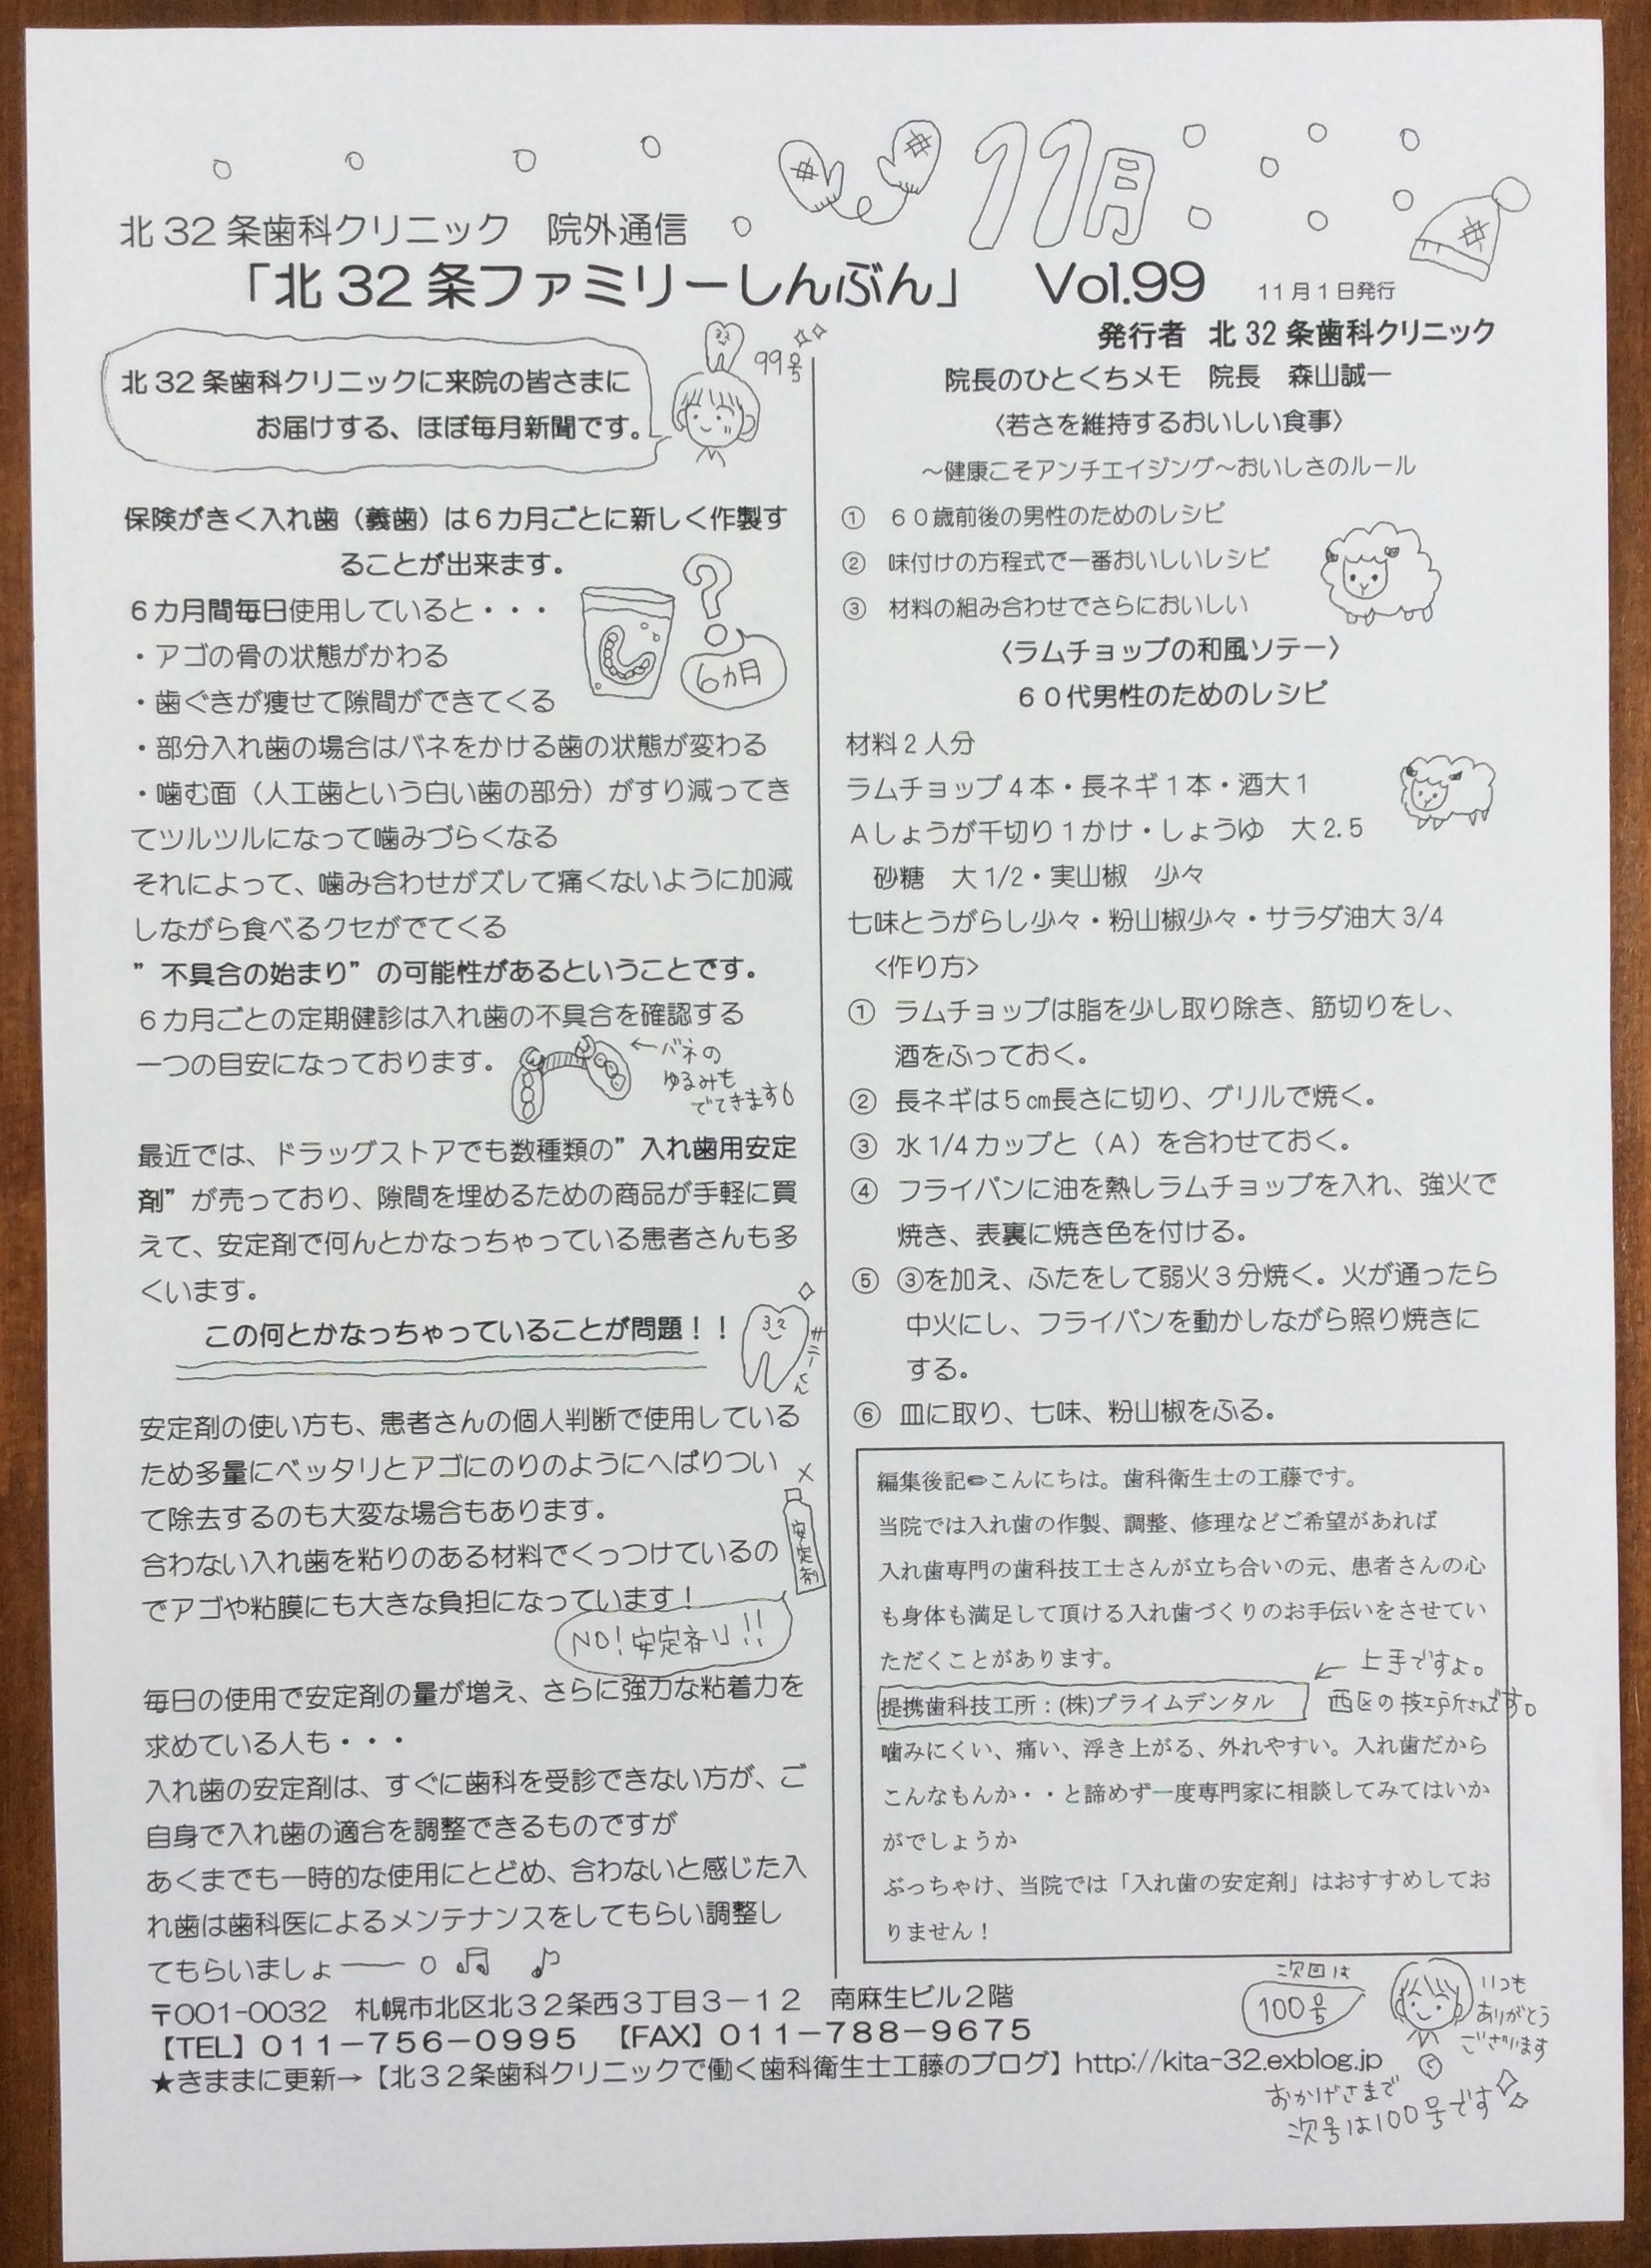 11月
北32条歯科クリニック　院外通信
「北32条ファミリーしんぶん」　Vol.99　11月1日発行
発行者　北32条歯科クリニック
北32条歯科クリニックに来院の皆さまに
お届けする、ほぼ毎月新聞です。
99号
保険がきく入れ歯（義歯）は６カ月ごとに新しく作製す
ることが出来ます。
６カ月間毎日使用していると・・・
・アゴの骨の状態がかわる
・歯ぐきが痩せて隙間ができてくる
？
6カ月
・部分入れ歯の場合はバネをかける歯の状態が変わる
・噛む面（人工歯という白い歯の部分）がすり減ってき
てツルツルになって噛みづらくなる
それによって、噛み合わせがズレて痛くないように加減
しながら食べるクセがでてくる
”不具合の始まり”の可能性があるということです。
６カ月ごとの定期健診は入れ歯の不具合を確認する
一つの目安になっております。
←バネの
ゆるみも
でてきます
最近では、ドラッグストアでも数種類の”入れ歯用安定
剤”が売っており、隙間を埋めるための商品が手軽に買
えて、安定剤で何んとかなっちゃっている患者さんも多
くいます。
この何とかなっちゃっていることが問題！！
32
サニーくん
安定剤の使い方も、患者さんの個人判断で使用している
ため多量にベッタリとアゴにのりのようにへばりつい
て除去するのも大変な場合もあります。
合わない入れ歯を粘りのある材料でくっつけているの
でアゴや粘膜にも大きな負担になっています！
安定剤
NO！安定剤!!
毎日の使用で安定剤の量が増え、さらに強力な粘着力を
求めている人も・・・
入れ歯の安定剤は、すぐに歯科を受診できない方が、ご
自身で入れ歯の適合を調整できるものですが
あくまでも一時的な使用にとどめ、合わないと感じた入
れ歯は歯科医によるメンテナンスをしてもらい調整し
てもらいましょ――。♬　♪
院長のひとくちメモ　院長　森山誠一
〈若さを維持するおいしい食事〉
～健康こそアンチエイジング～おいしさのルール
①　６０歳前後の男性のためのレシピ
②　味付けの方程式で一番おいしいレシピ
③　材料の組み合わせでさらにおいしい
〈ラムチョップの和風ソテー〉
６０代男性のためのレシピ
材料２人分
ラムチョップ４本・長ネギ１本・酒大１
Ａしょうが千切り１かけ・しょうゆ　大2.5
砂糖　大1/2・実山椒　少々
七味とうがらし少々・粉山椒少々・サラダ油大3/4
<作り方>
①　ラムチョップは脂を少し取り除き、筋切りをし、
酒をふっておく。
②　長ネギは５㎝長さに切り、グリルで焼く。
③　水1/4カップと（Ａ）を合わせておく。
④　フライパンに油を熱しラムチョップを入れ、強火で
焼き、表裏に焼き色を付ける。
⑤　③を加え、ふたをして弱火３分焼く。火が通ったら
中火にし、フライパンを動かしながら照り焼きに
する。
⑥　皿に取り、七味、粉山椒をふる。
編集後記✏こんにちは。歯科衛生士の工藤です。
当院では入れ歯の作製、調整、修理などご希望があれば
入れ歯専門の歯科技工士さんが立ち合いの元、患者さんの心
も身体も満足して頂ける入れ歯づくりのお手伝いをさせてい
ただくことがあります。
提携歯科技工所：(株)プライムデンタル
← 上手ですよ。
西区の技工所さんです。
噛みにくい、痛い、浮き上がる、外れやすい。入れ歯だから
こんなもんか・・と諦めず一度専門家に相談してみてはいか
がでしょうか
ぶっちゃけ、当院では「入れ歯の安定剤」はおすすめしてお
りません！
次回は
100号
いつも
ありがとう
ございます
〒001-0032　札幌市北区北３２条西３丁目３－１２　南麻生ビル２階
【TEL】０１１－７５６－０９９５　【FAX】０１１－７８８－９６７５
★きままに更新→【北３２条歯科クリニックで働く歯科衛生士工藤のブログ】http://kita-32.exblog.jp
おかげさまで
次号は100号です